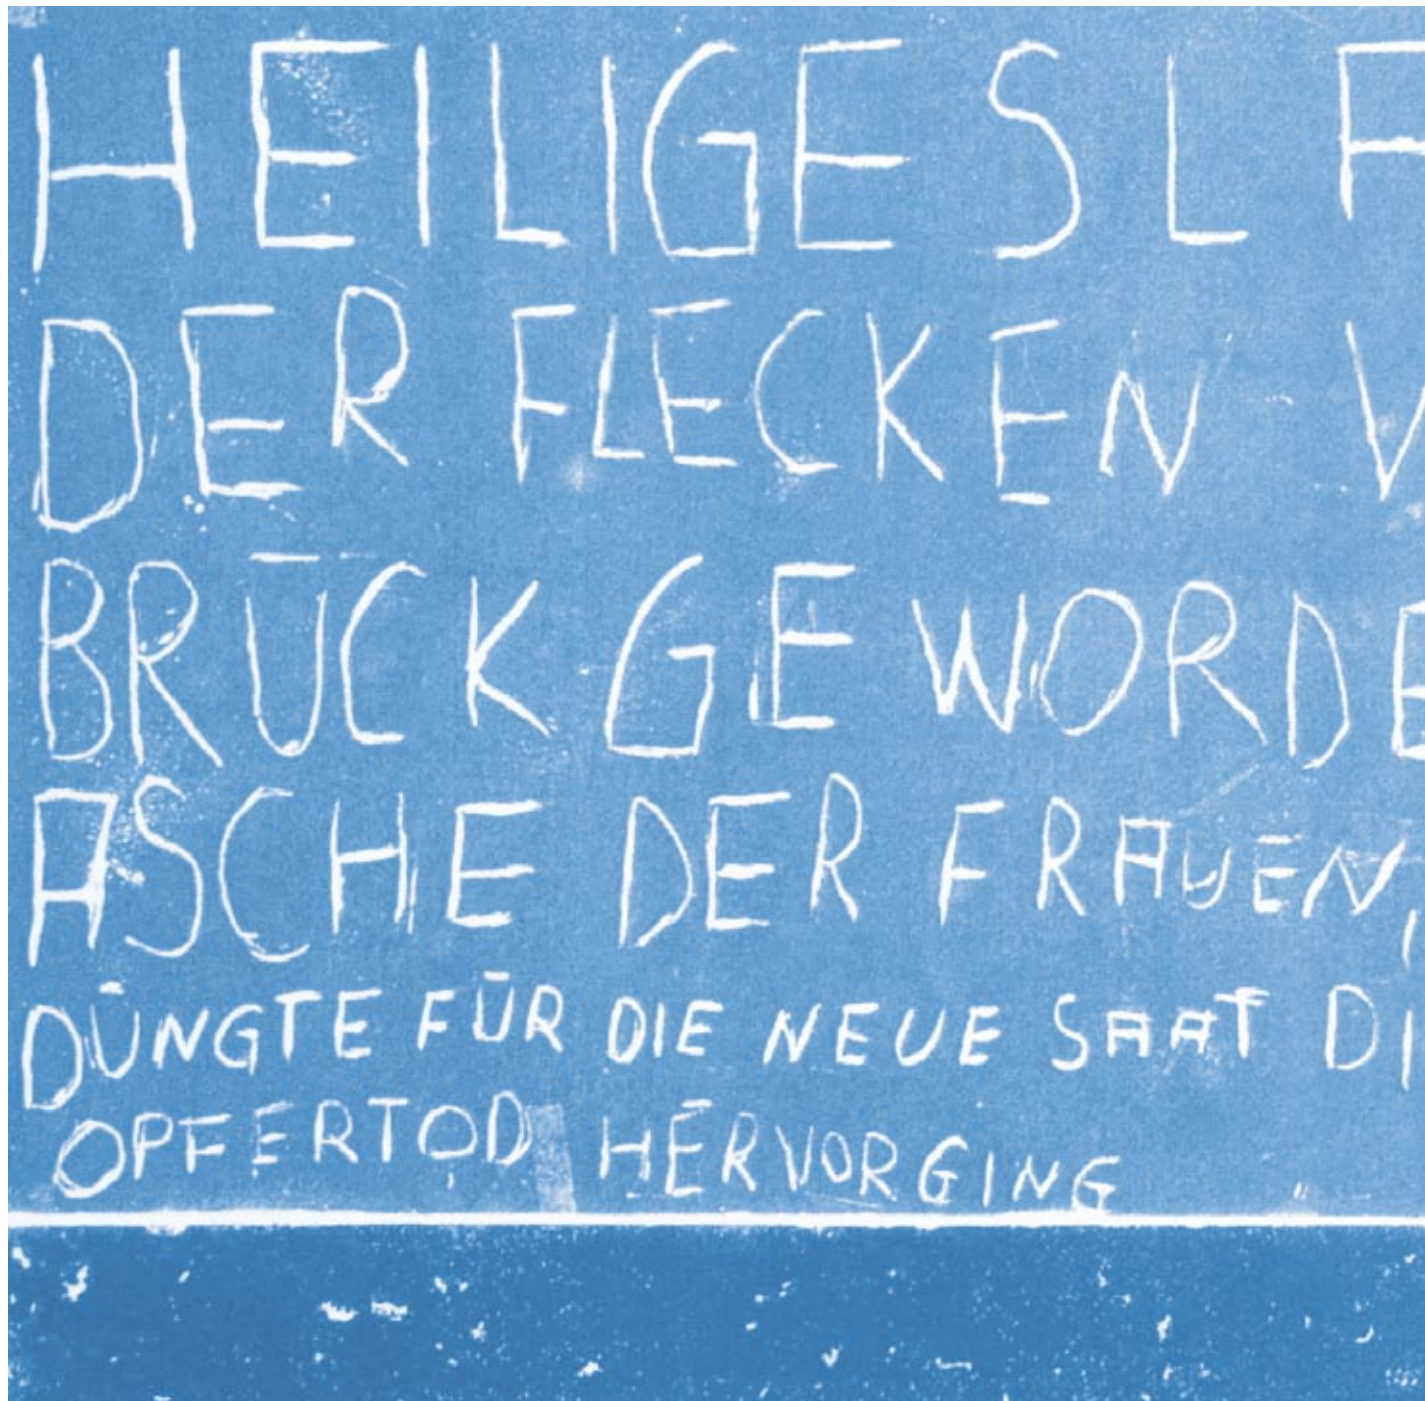 HEILIGES L F
DER FLECKEN V
BRŪCK GEWORDE
ASCHE DER FRAUEN,
DŪNGTE FŪR DIE NEUE SAAT DI
OPFERTOD HERVORGING